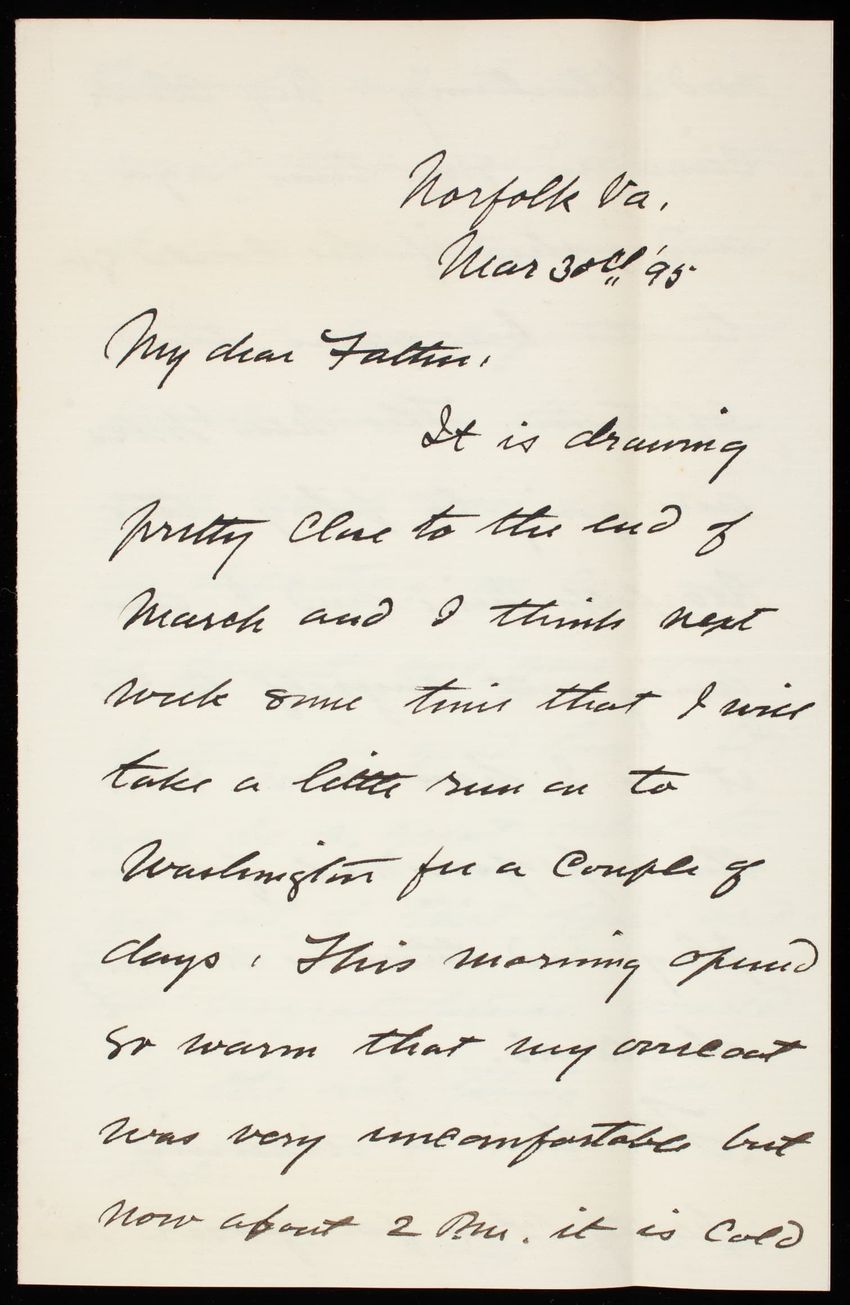 Norfolk Va.
Mar 30th '95
My dear Father,
It is drawing
pretty close to the end of
March and I think next
week some time that I will
take a little run on to
Washington for a couple of
days. This morning opened
so warm that my overcoat
was very uncomfortable but
now about 2 P.m. it is cold